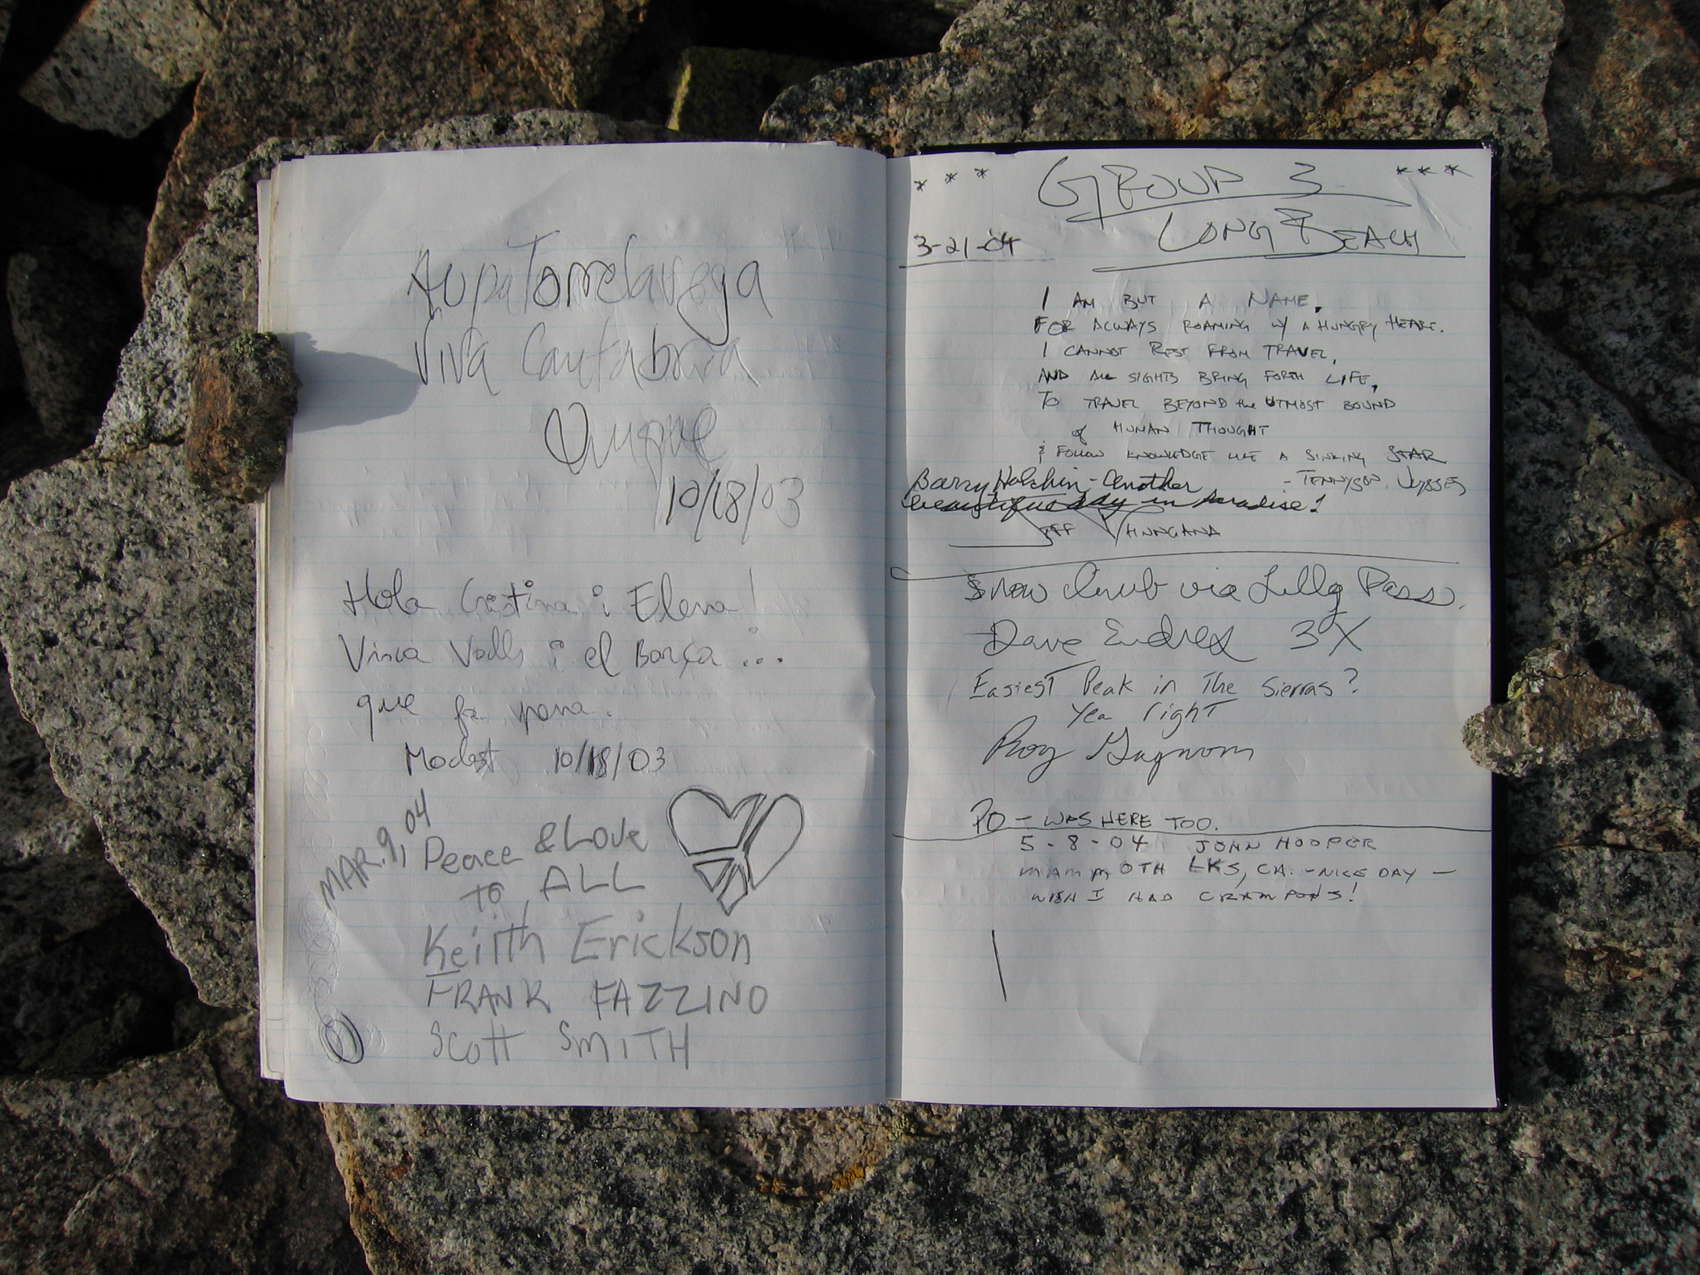 Aupa Torrelavega
Viva Cantabria
Quique
10/18/03
Hola Cristina i Elena!
Visca Valls i el Barça...
que fa pona.
Modest 10/18/03
MAR. 9, 04
Peace & Love
TO ALL
Keith Erickson
FRANK FAZZINO
Scott SMITH
* * * GROUP 3 * * *
LONG BEACH
3-21-04
I AM BUT A NAME,
FOR ALWAYS ROAMING W/ A HUNGRY HEART.
I CANNOT REST FROM TRAVEL,
AND ALL SIGHTS BRING FORTH LIFE,
TO TRAVEL BEYOND the UTMOST BOUND
of HUMAN THOUGHT
& FOLLOW KNOWLEDGE LIKE A SINKING STAR
- TENNYSON, ULYSSES
Barry - Another
beautiful day in paradise!
Snow climb via Lilly Pass.
Dave Endres 3X
Easiest Peak in The Sierras?
Yea right
Roy Gagnon
PO - WAS HERE TOO.
5-8-04 JOHN HOOPER
MAMMOTH LKS, CA. - NICE DAY -
WISH I HAD CRAMPONS!